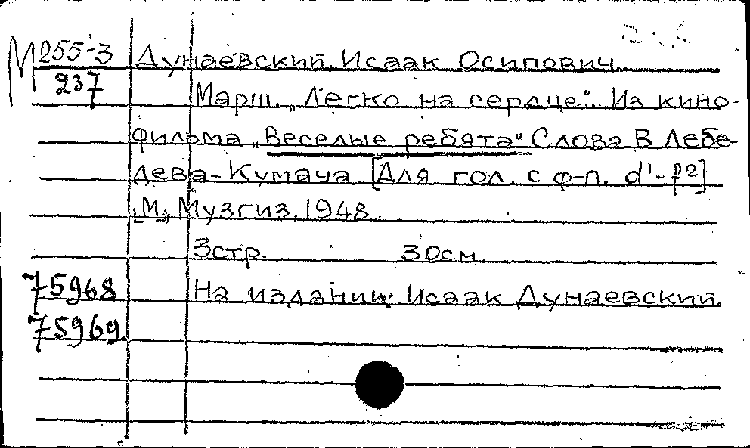 М 255-3
237
Дунаевский, Исаак Осипович.
Марш „Легко на сердце". Из кино-
фильма „Веселые ребята" Слова В. Лебе-
дева-Кумача [Для гол. с ф-п. d¹-f²]
[М.], Музгиз, 1948.
3стр. 30см.
75968 На издании: Исаак Дунаевский.
75969